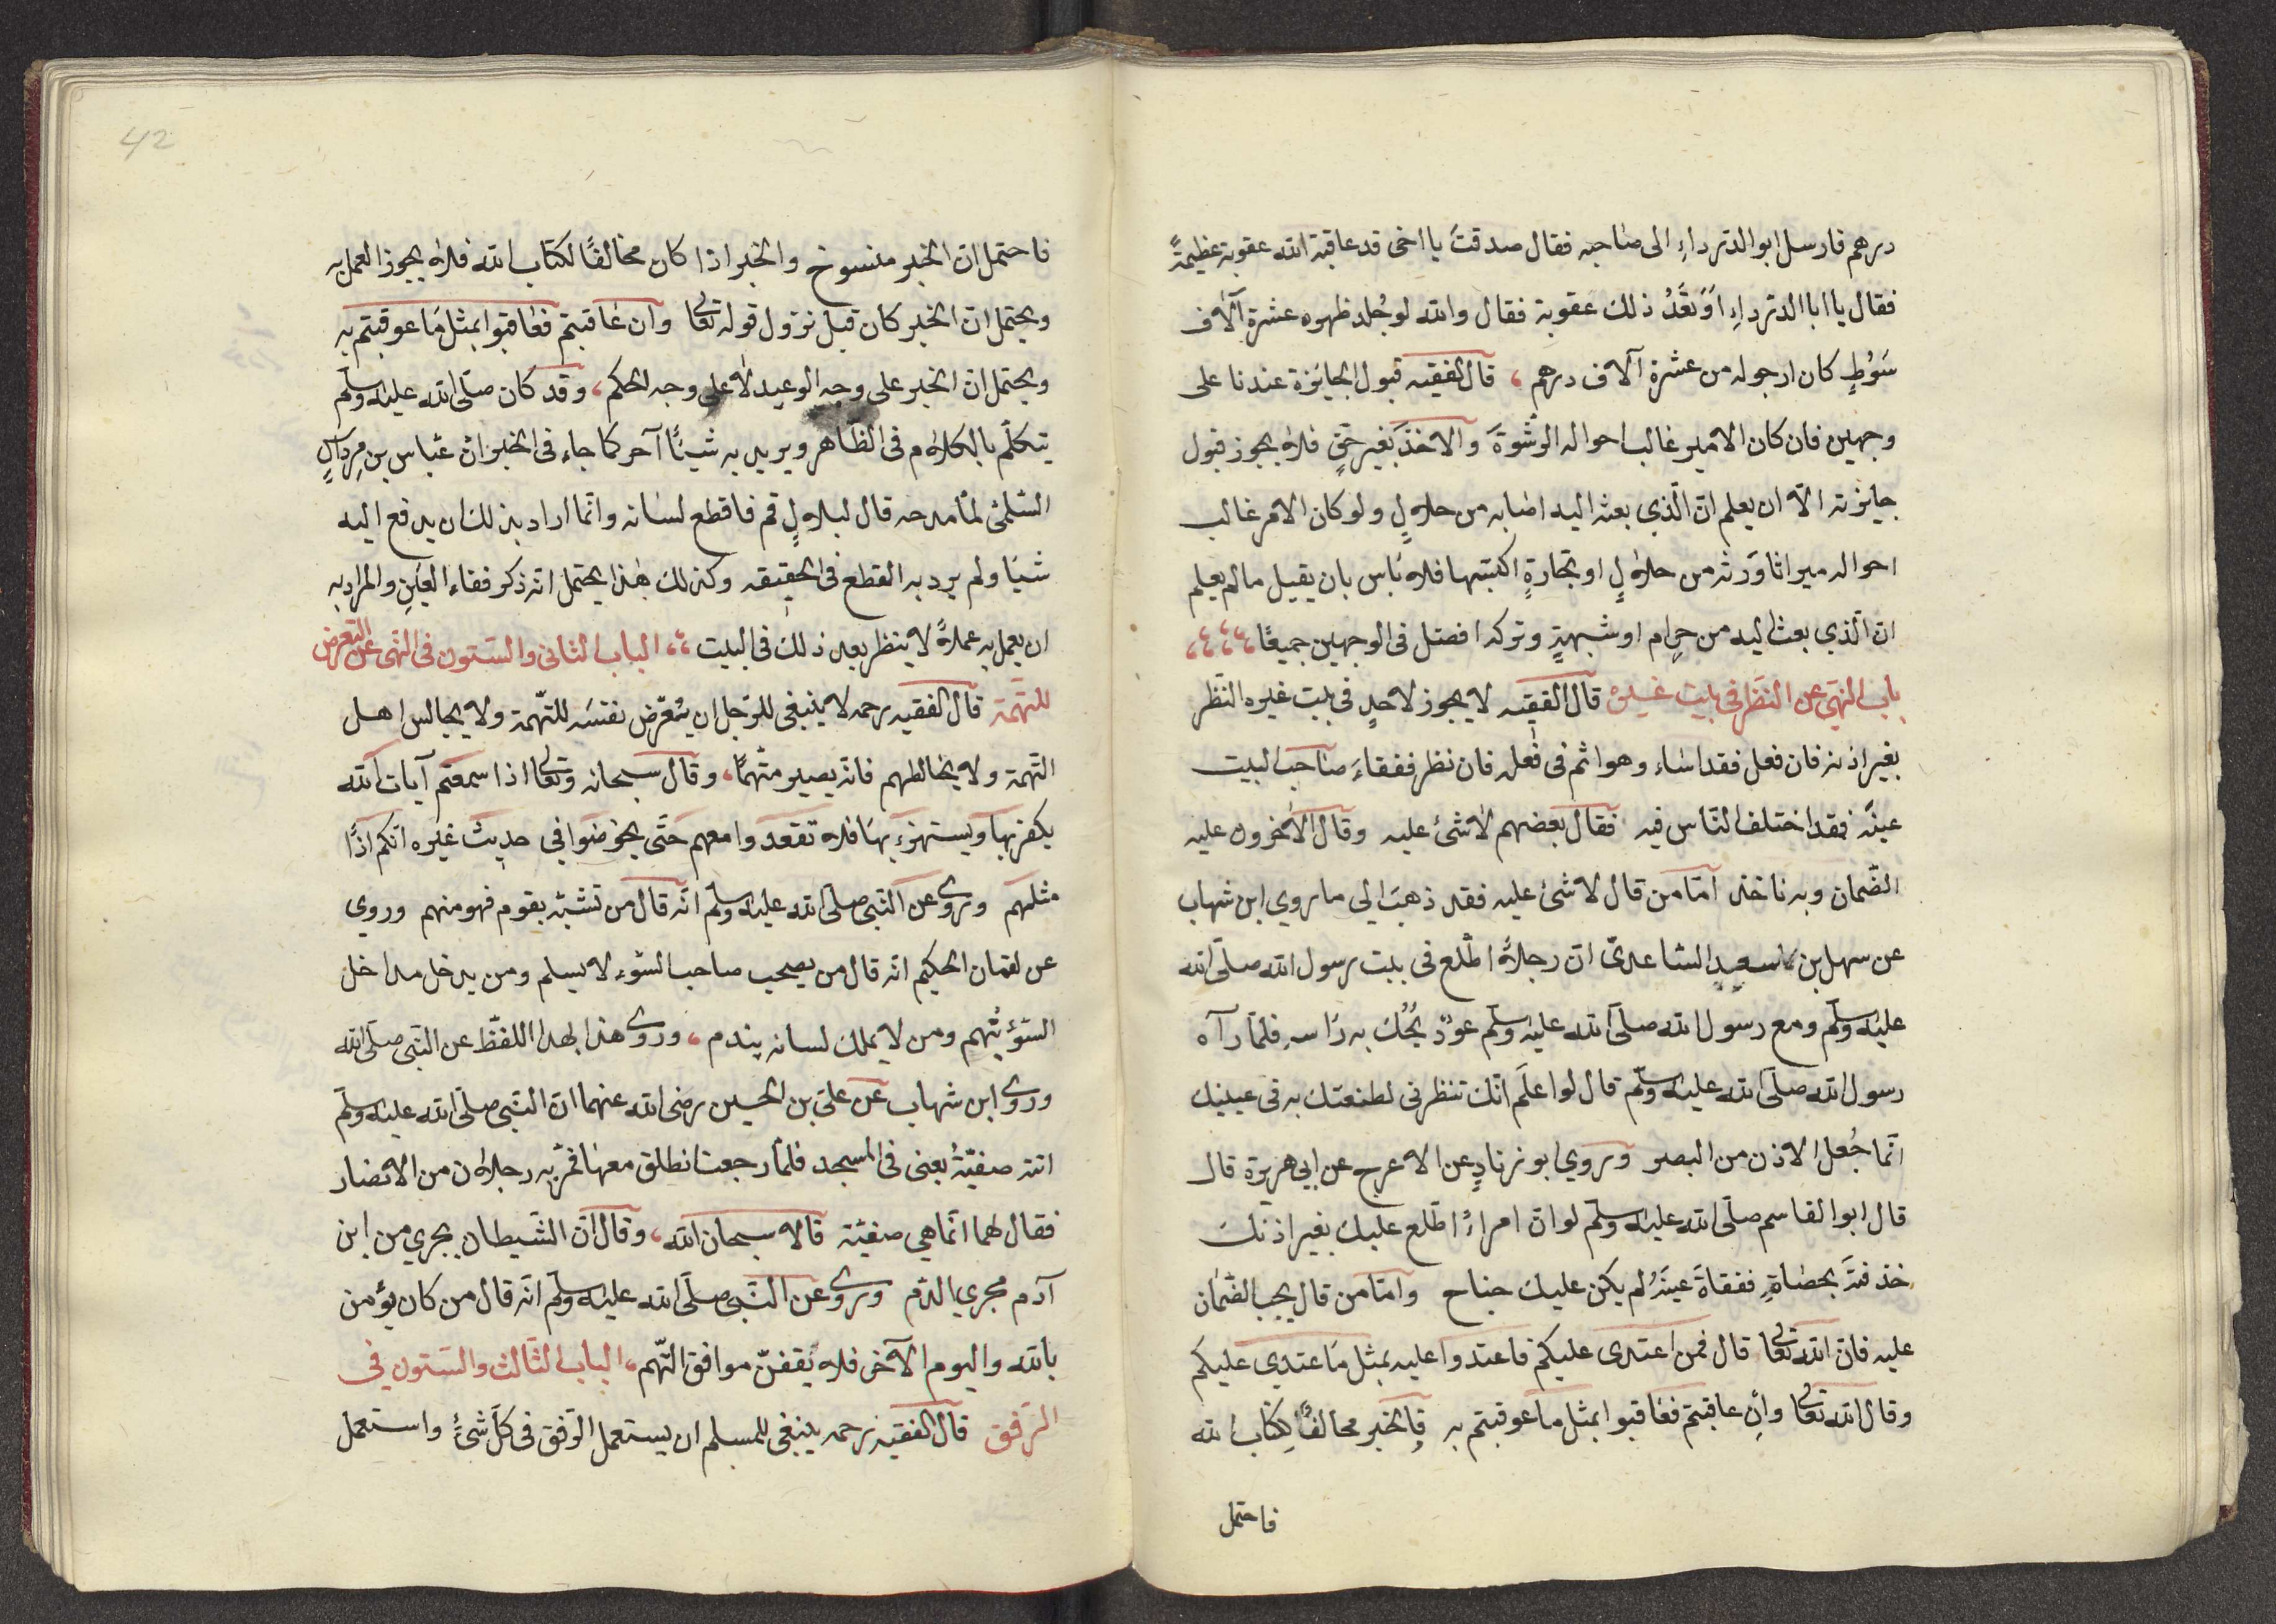 درهم فارسل ابو الدرداءِ الى صاحبه فقال صدقتَ يا اخى قد عاقبة الله عقوبة عظيمةً
فقال يا ابا الدرداءِ اَوَ تَعُدُّ ذلك عقوبة فقال والله لو جُلد ظهوه عشرة آلاف
سَوْطٍ كان ارجو له من عشرة آلاف درهم ، قال الفقيه قبول الجايزة عندنا على
وجهين فان كان الامير غالب احواله الرشوةَ والاخذَ بغير حَقٍ فلا يجوز قبول
جايزته الّا ان يعلم انّ الّذي بعثه اليه اصابه من حلالٍ ولو كان الامر غالب
احواله ميراثا وَرثه من حلالٍ او تجارةٍ اكتسبها فلا بَاس بان يقبل ما لم يعلم
انّ الّذي بعث اليه من حرام او شبهةٍ وتركه افضل فى الوجهين جميعًا ،،،،
باب النهى عن النظر فى بيت غيره قال الفقيه لا يجوز لاحدٍ فى بيت غيره النَظر
بغير اذنه فان فعل فقد اسَاء وهو اثم فى فعله فان نظر ففقاءَ صاحب البيت
عينَه فقد اختلف النّاس فيه فقال بعضهم لا شئ عليه وقال الآخرون عليه
الضّمان وبه ناخذ امّا من قال لا شئ عليه فقد ذهبَ الي ما روي ابن شهاب
عن سهل بن سعيدٍ الساعديّ انّ رجلاً اطّلع فى بيت رسول الله صلّى الله
عليه وسلّم ومع رسول الله صلّى الله عليه وسلّم عودٌ يحُكّ به رَاسه فلمّا رآه
رسول الله صلّى الله عليه وسلّم قال لو اعلَم انّك تنظرنى لطعنتك به فى عينيك
انّما جُعل الاذن من البصر وروي ابو زنادٍ عن الاعرج عن ابي هريرة قال
قال ابو القاسم صلّى الله عليه وسلّم لو انّ امراءً اطّلع عليك بغير اذنك
خذفته بحصاةٍ ففقاةَ عينَهُ لم يكن عليك جناح وامّا من قال يجب الضّمان
عليه فانّ الله تعالى قال فمن اعتدى عليكم فاعتدوا عليه بمثل ما اعتدي عليكم
وقال الله تعالى وأن عاقبتم فعَاقبوا بمثل ما عوقبتم به فالخبر مخالفًا لكتاب الله
فاحتمل
42
فاحتمل انّ الخبر منسوخ والخبر اذا كان مخالفًا لكتاب الله فلا يجوز العمل به
ويحتمل انّ الخبر كان قبل نزول قوله تعالى وان عاقبتم فعاقبوا بمثل ما عوقبتم به
ويحتمل انّ الخبر على وجه الوعيد لا على وجه الحكم ، وقد كان صلّى الله عليه وسلّم
يتكلّم بالكلام فى الظّاهر ويريد به شيئًا آخر كما جاء فى الخبر انّ عبّاس بن مِردَاسٍ
السّلمىّ لمّا مدحه قال لبلالٍ قم فاقطع لسانه وانّما اراد بذلك ان يدفع اليه
شيئا ولم يرد به القطع فى الحقيقه وكذلك هٰذا يحتمل انّه ذكر فقاء العَينِ والمراد به
ان يعمل به عملاً لا ينظر بعد ذلك فى البيت ،، الباب الثانى والستون فى النّهى عن التعرض
للتهّمة قال الفقيه رحمه لا ينبغى للرّجل ان يتعرّض نفسَه للتّهمة ولا يجالس اهل
التّهمة ولا يخالطهم فانّه يصير متّهماً ، وقال سبحانه وتعالى اذا سمعتم آيات الله
يكفر بها ويستهزء بها فلا تقعدوا معهم حَتّى يخوضوا في حديث غيره انّكم اذًا
مثلهم وروى عن النّبى صلى الله عليه وسلم انّه قال من تشبّه بقوم فهو منهم وروي
عن لقمان الحكيم انه قال من يصحب صاحب السّوء لا يسلم ومن يدخل مداخل
السّوء يُتّهم ومن لا يملك لسانه يندم ، وروى هذا بهذا اللفظّ عن النّبى صلى الله
وروى ابن شهاب عن علىّ بن الحسين رضى الله عنهما انّ النّبى صلّى الله عليه وسلّم
اتته صفيّةُ يعنى فى المسجد فلمّا رجعت انطلق معها فمَرّ به رجلان من الانصار
فقال لهما انّما هي صفيّة قالا سبحان الله ، وقال انّ الشّيطان يجري من ابن
آدم مجري الدّم وروى عن النّبى صلّى الله عليه وسلّم انّه قال من كان يؤمن
بالله واليوم الآخر فلا يَقفنّ مواقف التّهم ، الباب الثّالث والستّون في
الرّفق قال الفقيه رحمه ينبغى للمسلم ان يستعمل الرّفق فى كلّ شئ واستعمل